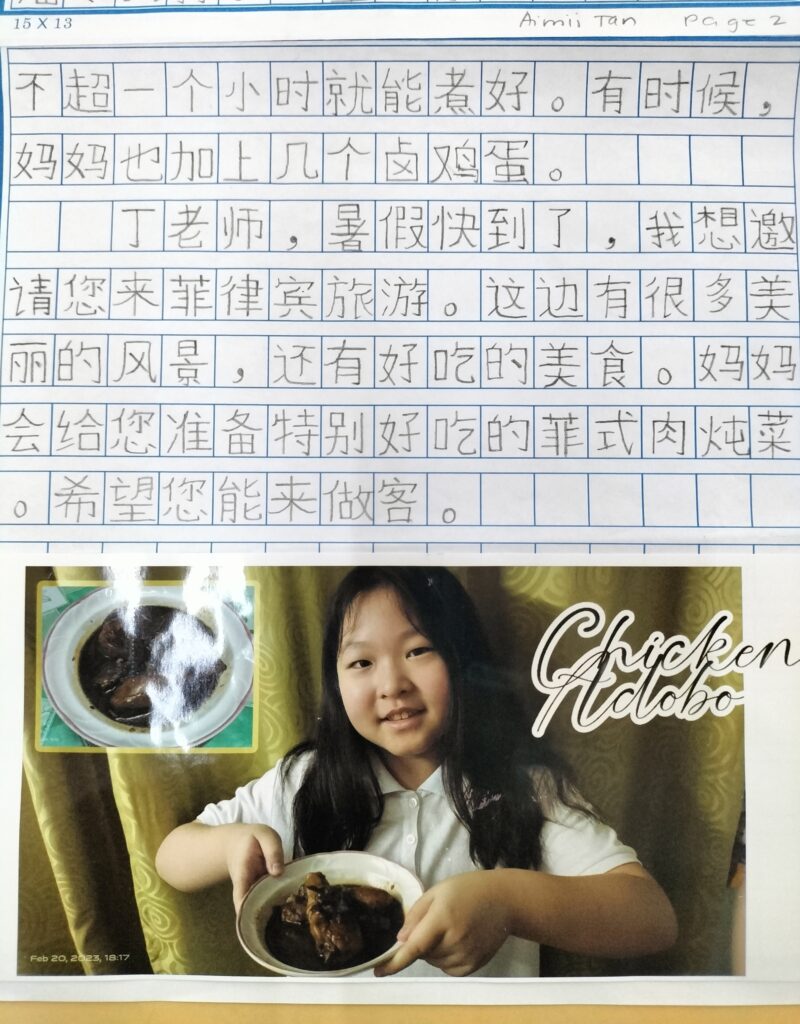 15 X 13
Aimii Tan Page 2
不超一个小时就能煮好。有时候，
妈妈也加上几个卤鸡蛋。
丁老师，暑假快到了，我想邀
请您来菲律宾旅游。这边有很多美
丽的风景，还有好吃的美食。妈妈
会给您准备特别好吃的菲式肉炖菜
。希望您能来做客。
Chicken
Adobo
Feb 20, 2023, 18:17